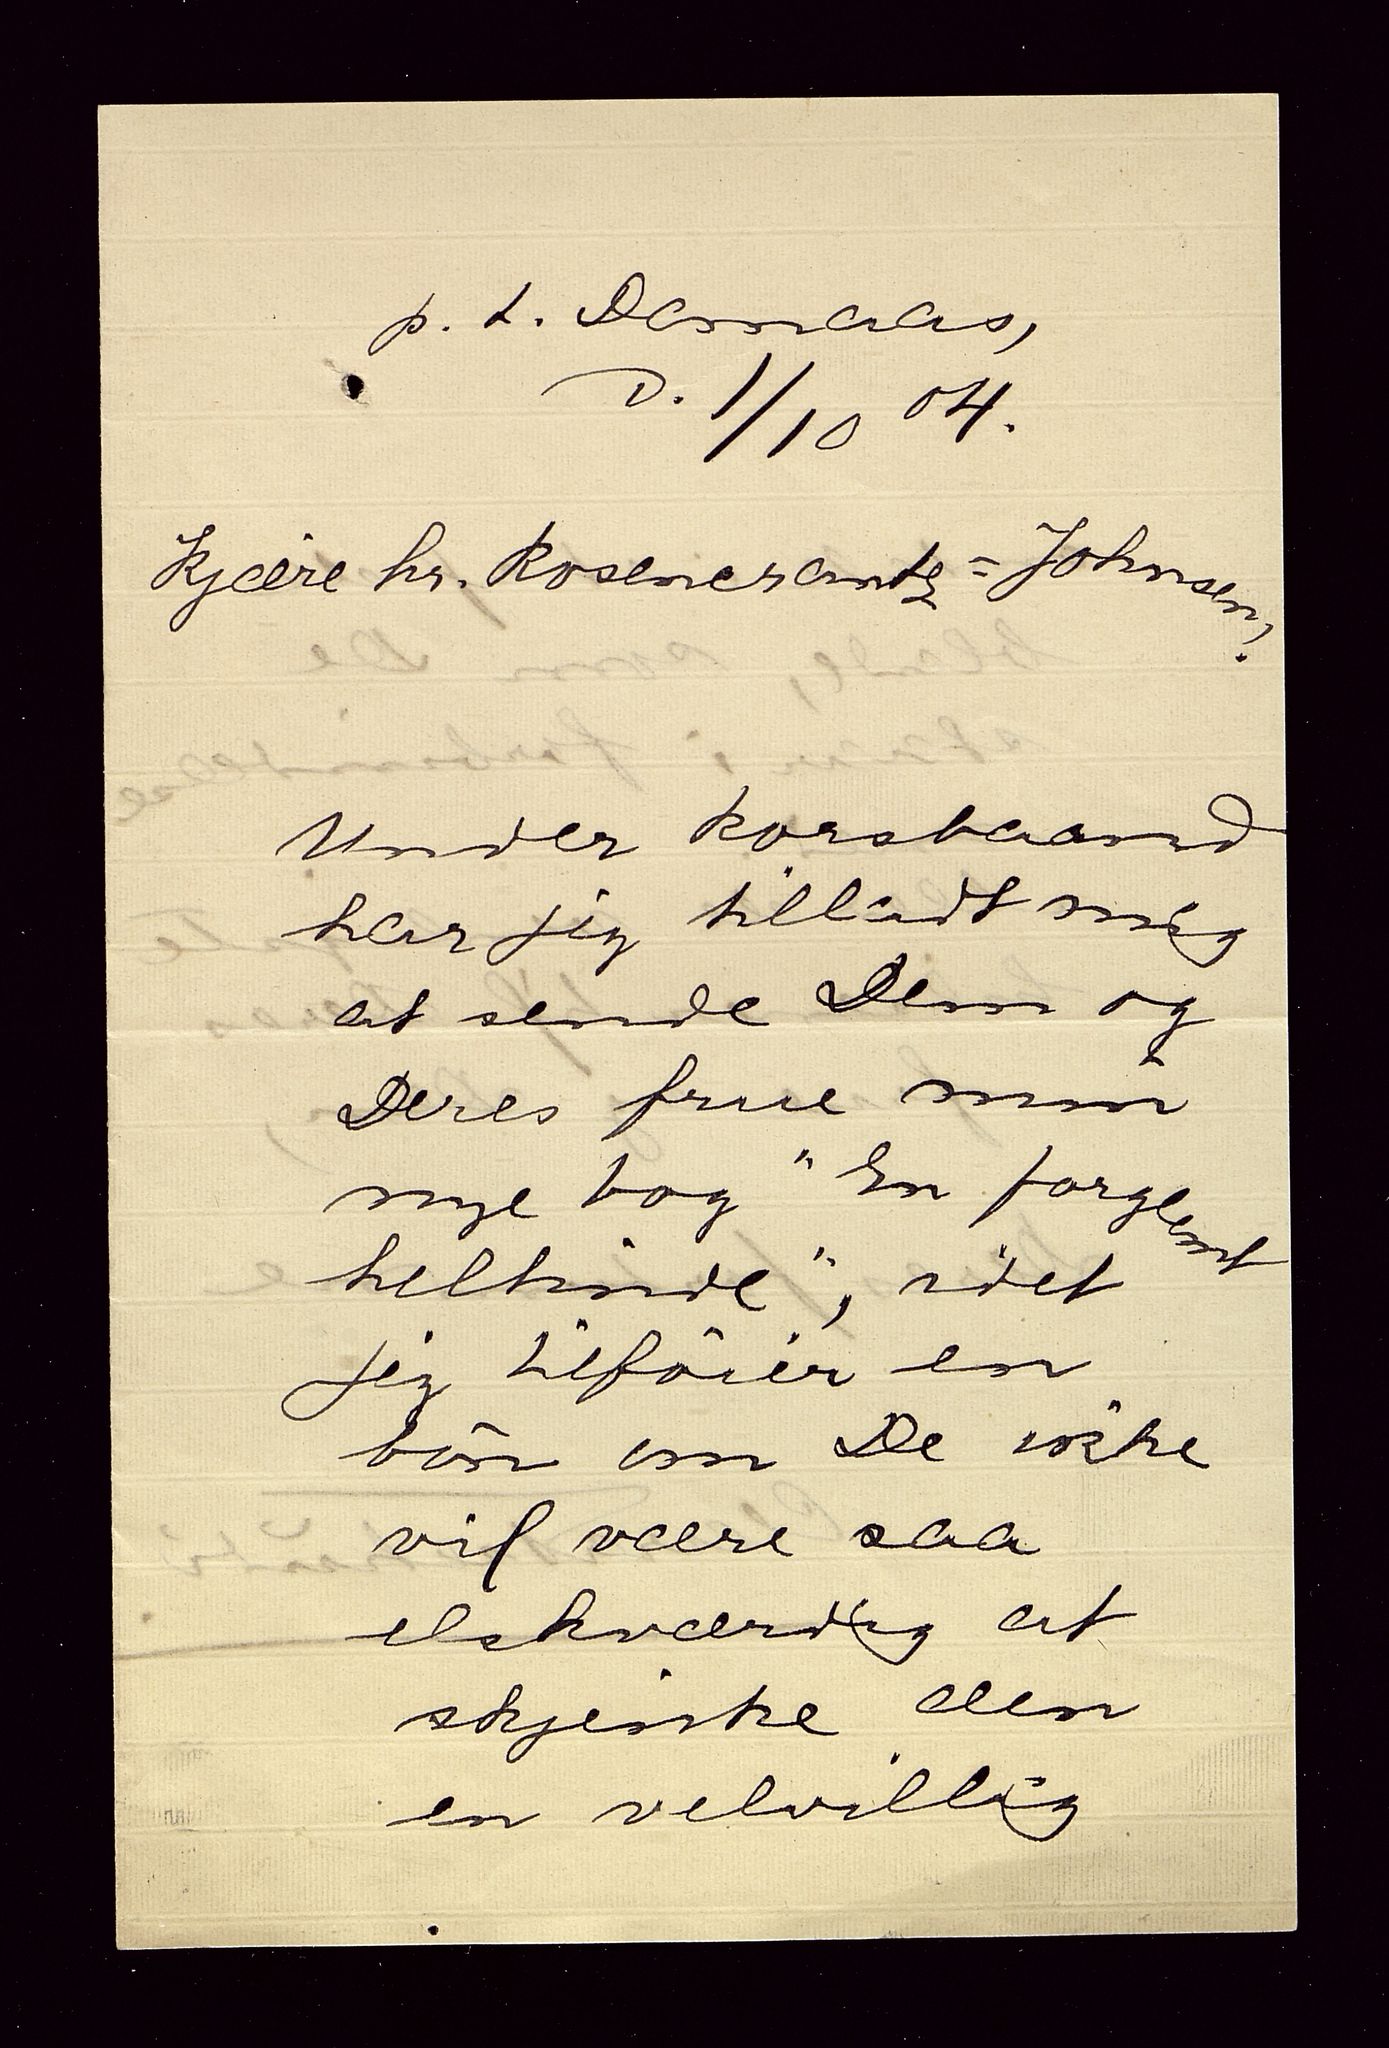 p. t. Domaas,
d. 1/10 04.
Kjære hr. Rosencrantz=Johnsen!
Under korsbaand
har jeg tilladt mig
at sende Dem og
Deres frue min
nye bog "En forglemt
heltinde", idet
jeg tilföier en
bön om De ikke
vil være saa
elskværdig at
skjenke den
en velvillig